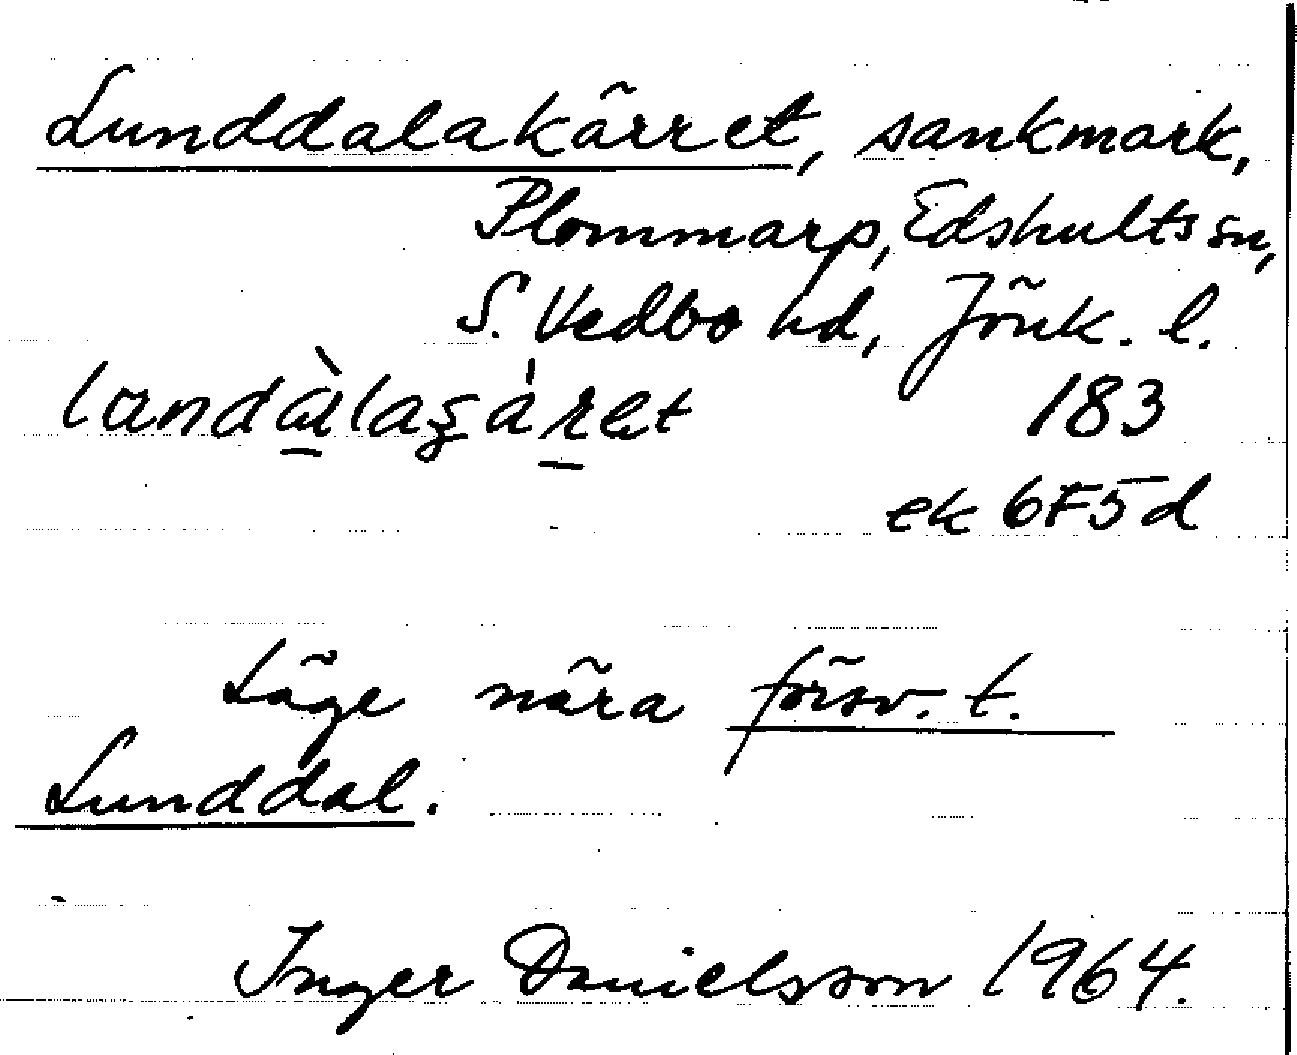 Lunddalakärret, sankmark,
Plommarp, Edshults sn,
S. Vedbo hd, Jönk. l.
183
ek 6F5d
Läge nära försv. t.
Lunddal.
Inger Danielsson 1964.